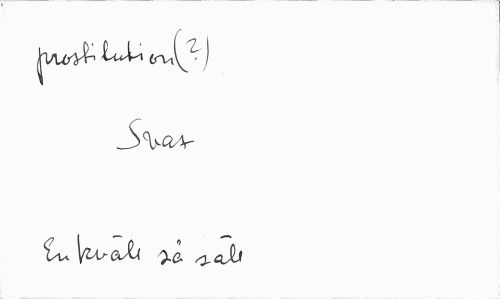 prostitution(?)
Svar
En kväll så säll